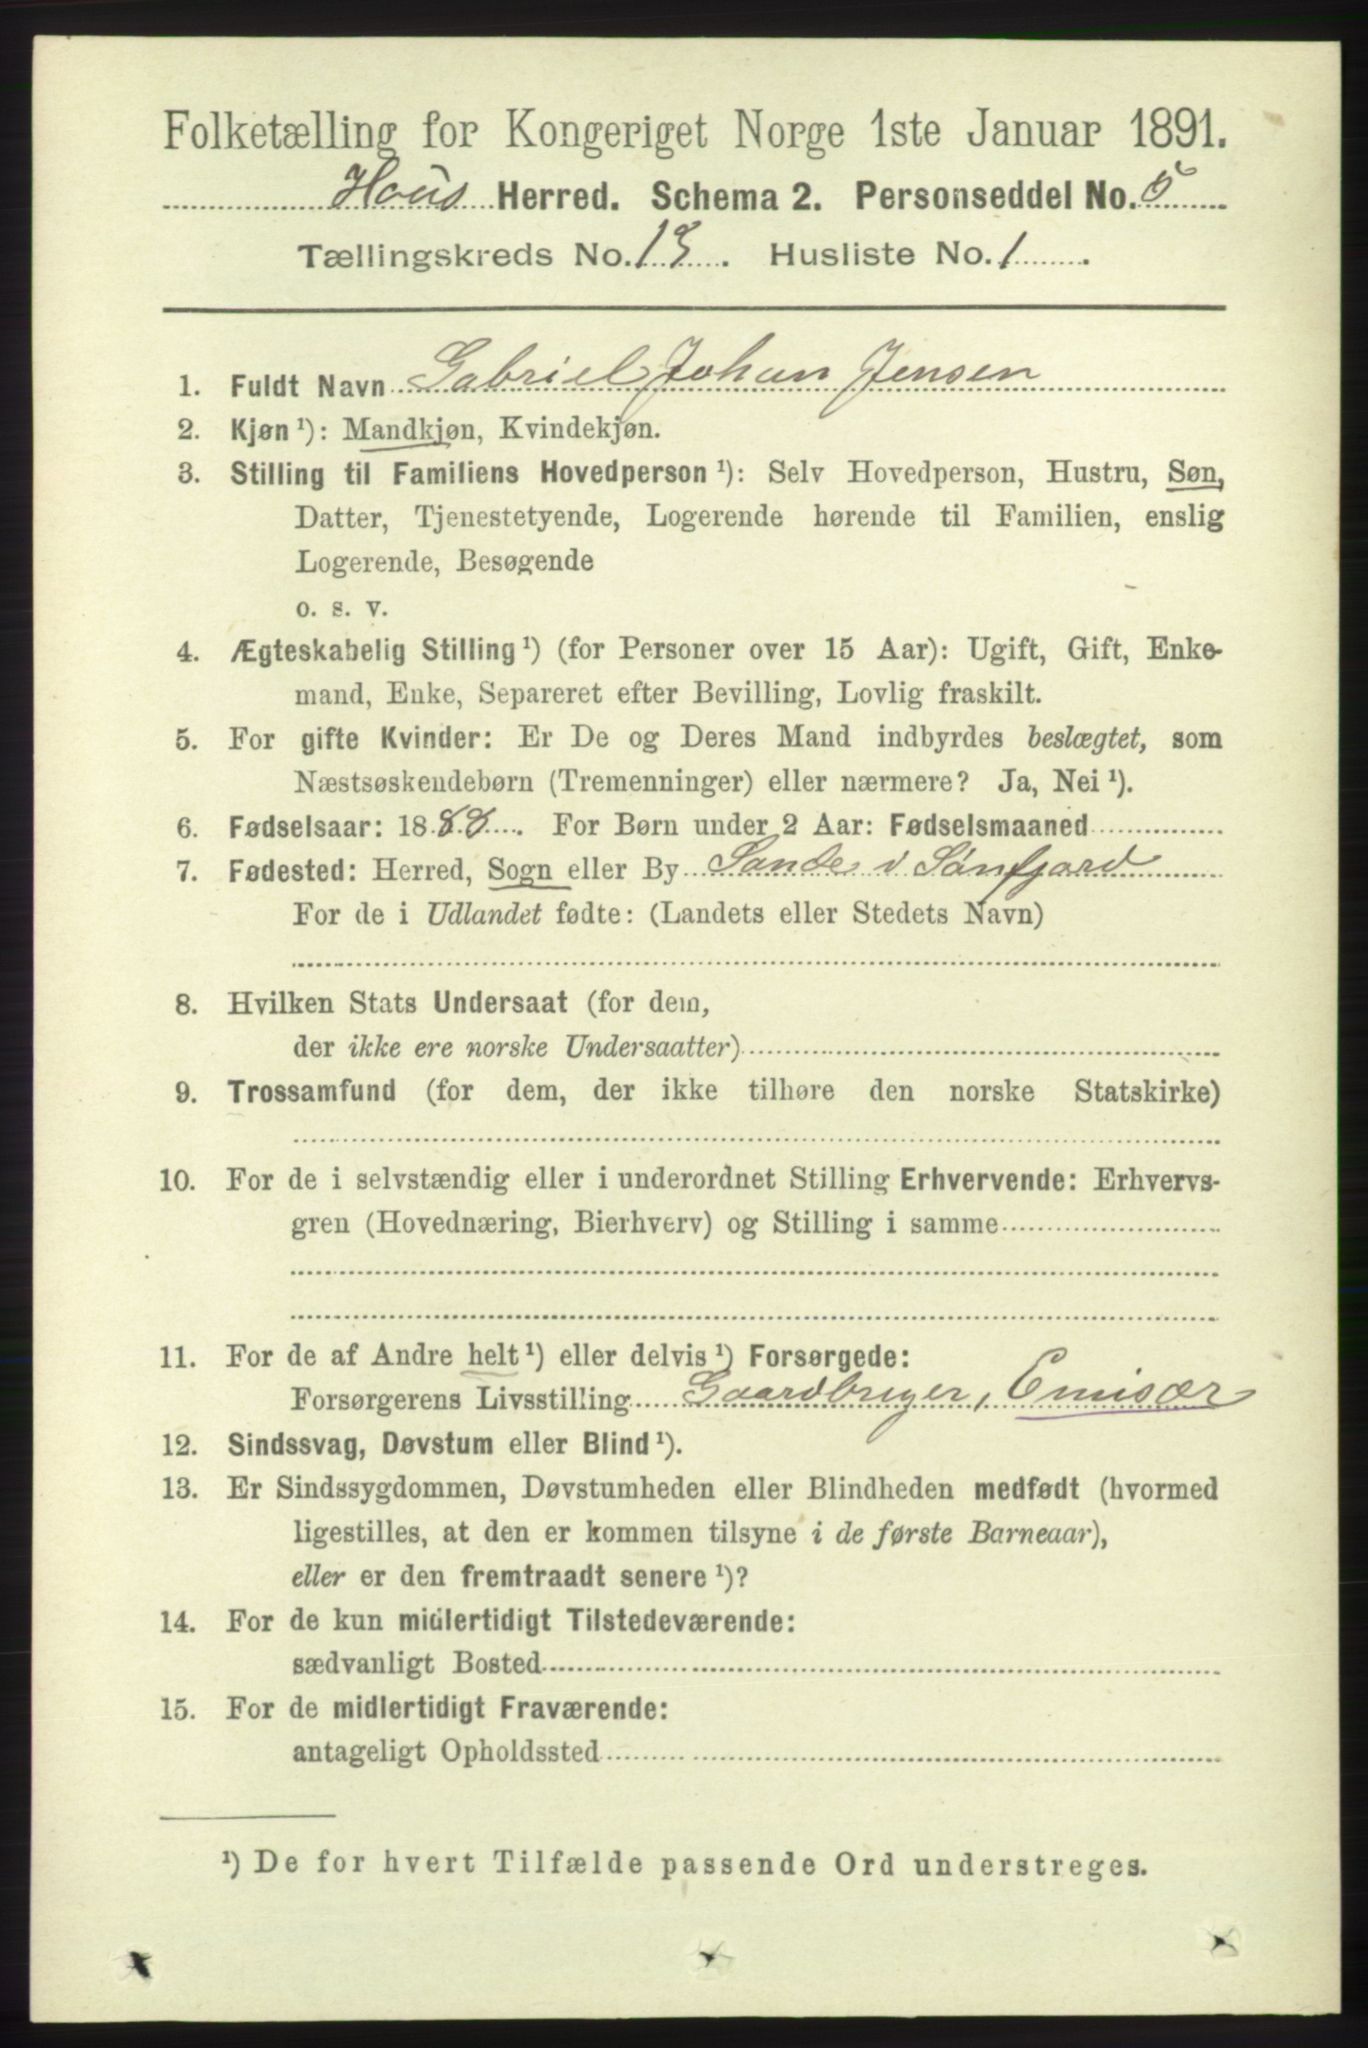 Folketælling for Kongeriget Norge 1ste Januar 1891.
Hous Herred. Schema 2. Personseddel No. 5
Tællingskreds No. 13. Husliste No. 1.
1. Fuldt Navn Gabriel Johan Jensen
2. Kjøn ¹): Mandkjøn, Kvindekjøn.
3. Stilling til Familiens Hovedperson ¹): Selv Hovedperson, Hustru, Søn,
Datter, Tjenestetyende, Logerende hørende til Familien, enslig
Logerende, Besøgende
o. s. v.
4. Ægteskabelig Stilling ¹) (for Personer over 15 Aar): Ugift, Gift, Enke-
mand, Enke, Separeret efter Bevilling, Lovlig fraskilt.
5. For gifte Kvinder: Er De og Deres Mand indbyrdes beslægtet, som
Næstsøskendebørn (Tremenninger) eller nærmere? Ja, Nei ¹).
6. Fødselsaar: 1888. For Børn under 2 Aar: Fødselsmaaned
7. Fødested: Herred, Sogn eller By Sande i Sønfjord
For de i Udlandet fødte: (Landets eller Stedets Navn)
8. Hvilken Stats Undersaat (for dem,
der ikke ere norske Undersaatter)
9. Trossamfund (for dem, der ikke tilhøre den norske Statskirke)
10. For de i selvstændig eller i underordnet Stilling Erhvervende: Erhvervs-
gren (Hovednæring, Bierhverv) og Stilling i samme
11. For de af Andre helt ¹) eller delvis ¹) Forsørgede:
Forsørgerens Livsstilling Gaardbruger, Emisær
12. Sindssvag, Døvstum eller Blind ¹).
13. Er Sindssygdommen, Døvstumheden eller Blindheden medfødt (hvormed
ligestilles, at den er kommen tilsyne i de første Barneaar),
eller er den fremtraadt senere ¹)?
14. For de kun midlertidigt Tilstedeværende:
sædvanligt Bosted
15. For de midlertidigt Fraværende:
antageligt Opholdssted
¹) De for hvert Tilfælde passende Ord understreges.